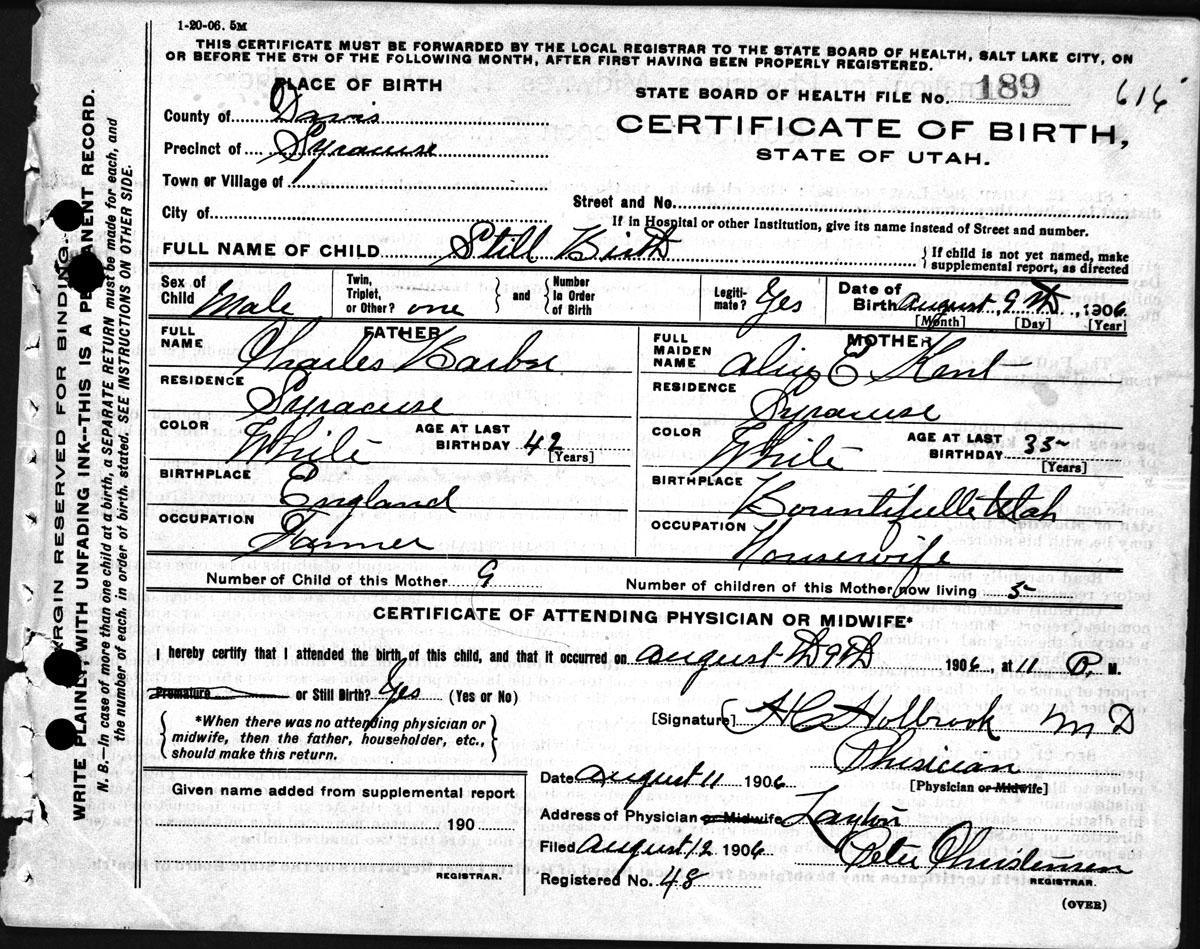 1-20-06. 5M
THIS CERTIFICATE MUST BE FORWARDED BY THE LOCAL REGISTRAR TO THE STATE BOARD OF HEALTH, SALT LAKE CITY, ON
OR BEFORE THE 5TH OF THE FOLLOWING MONTH, AFTER FIRST HAVING BEEN PROPERLY REGISTERED.
PLACE OF BIRTH
STATE BOARD OF HEALTH FILE No. 189 616
County of Davis
CERTIFICATE OF BIRTH,
STATE OF UTAH.
Precinct of Syracuse
Town or Village of
Street and No.
City of
If in Hospital or other Institution, give its name instead of Street and number.
FULL NAME OF CHILD Still Birth
{If child is not yet named, make
supplemental report, as directed
Sex of Child Male
Twin, Triplet, or Other? one } and { Number In Order of Birth
Legiti-mate? Yes
Date of Birth August, 9th, 1906
[Month] [Day] [Year]
FATHER
FULL NAME Charles
RESIDENCE Syracuse
COLOR White
AGE AT LAST BIRTHDAY 42 [Years]
BIRTHPLACE England
OCCUPATION Farmer
MOTHER
FULL MAIDEN NAME E Kent
RESIDENCE Syracuse
COLOR White
AGE AT LAST BIRTHDAY 35 [Years]
BIRTHPLACE Bountifulle Utah
OCCUPATION Housewife
Number of Child of this Mother 9
Number of children of this Mother now living 5
CERTIFICATE OF ATTENDING PHYSICIAN OR MIDWIFE*
I hereby certify that I attended the birth of this child, and that it occurred on August Th 9th 1906, at 11 P. M.
Premature or Still Birth? Yes (Yes or No)
{*When there was no attending physician or
midwife, then the father, householder, etc.,
should make this return.}
[Signature] A C Holbrook M D
Phisician
[Physician or Midwife]
Date August 11 1906
Address of Physician or Midwife Layton
Filed August 12 1906
Peter Christensen
REGISTRAR.
Registered No. 48
(OVER)
Given name added from supplemental report
190
REGISTRAR.
MARGIN RESERVED FOR BINDING.
WRITE PLAINLY, WITH UNFADING INK--THIS IS A PERMANENT RECORD.
N. B.—In case of more than one child at a birth, a SEPARATE RETURN must be made for each, and
the number of each, in order of birth, stated. SEE INSTRUCTIONS ON OTHER SIDE.